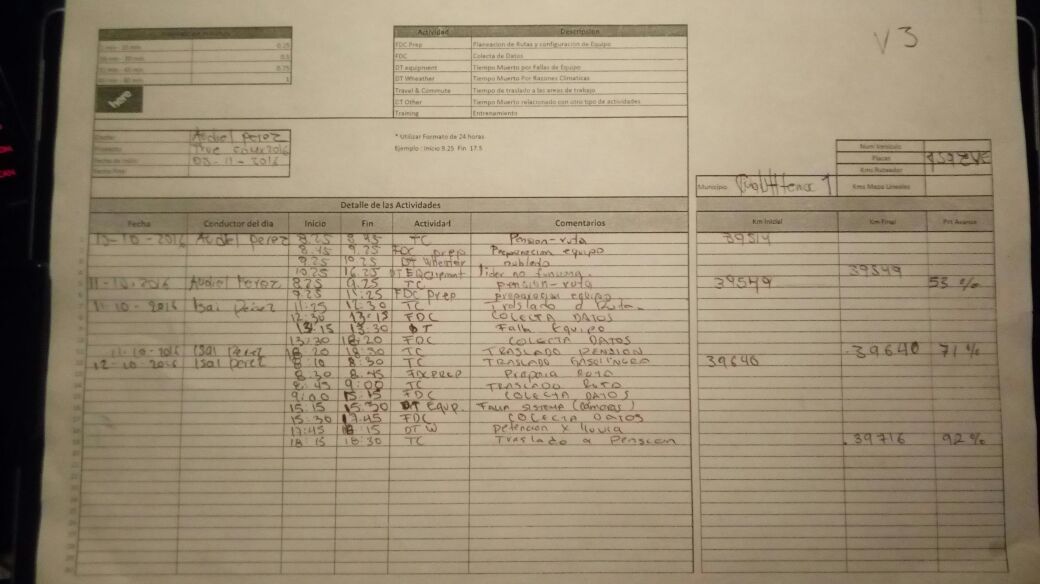 V3
0.25
0.5
0.75
1
here
Actividad Descripcion
FDC Prep Planeacion de Rutas y configuración de Equipo
FDC Colecta de Datos
DT equipment Tiempo Muerto por Fallas de Equipo
DT Wheather Tiempo Muerto Por Razones Climaticas
Travel & Commute Tiempo de traslado a las areas de trabajo
DT Other Tiempo Muerto relacionado con otro tipo de actividades
Training Entrenamiento
* Utilizar Formato de 24 horas
Ejemplo : Inicio 9.25 Fin 17.5
Audiel Perez
2016
Fecha de Inicio 03-11-2016
Fecha Final
Num Vehiculo
Placas
Kms Ruteador
Municipio 1 Kms Mapa Lineales
Detalle de las Actividades
Fecha Conductor del dia Inicio Fin Actividad Comentarios Km Inicial Km Final Pct Avance
10-2016 Audiel Perez 8.25 8.45 TC Pension-ruta 39514
8.45 9.25 FDC prep Preparacion equipo
9.25 10.25 DT Wheater nublado
10.25 16.25 DT EQuipment lider no 39549
11-10-2016 Audiel Perez 8.25 9.25 TC pension-ruta 39549 53 %
9.25 11:25 FDC prep preparacion equipo
11-10-2016 Isai perez 11:25 TC Traslado a Ruta
12:30 13:15 FDC COLECTA DATOS
13:15 13:30 DT Falla Equipo
13:30 18:20 FDC COLECTA DATOS
11-10-2016 Isai Perez 18:20 18:50 TC TRASLADO PENSION 39640 71 %
12-10-2016 Isai perez 8:10 8:30 TC TRASLADO GASOLINERA 39640
8:30 8:45 FDC PREP Prepara Ruta
8:45 9:00 TC TRASLADO RUTA
9:00 15:15 FDC COLECTA DATOS
15:15 15:30 DT EQUP. FALLA SISTEMA (camaras)
15:30 17:45 FDC COLECTA DATOS
17:45 18:15 DT W Detencion x lluvia
18:15 18:30 TC Traslado a Pension 39716 92 %